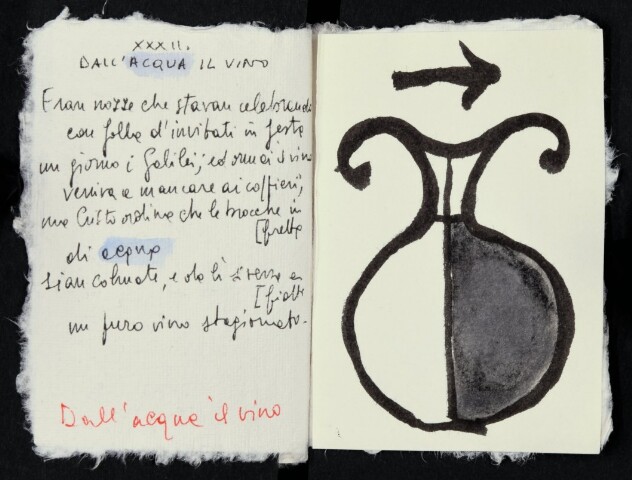 XXXII.
DALL'ACQUA IL VINO
Eran nozze che stavan celebrando
con folla d'invitati in festa
un giorno i Galilei, ed ormai il vino
veniva a mancare ai coppieri,
ma Cristo ordina che le brocche in
[fretta
di acqua
sian colmate, e da lì si versa a
[fiotti
un puro vino stagionato.
Dall'acqua il vino